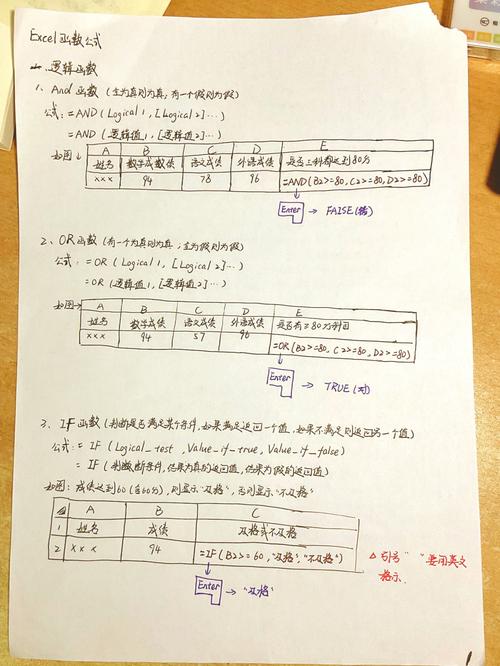 Excel 函数公式
一、逻辑函数
1、And 函数（全为真则为真，有一个假则为假）
公式：=AND（Logical 1，[Logical 2]…）
=AND（逻辑值1，[逻辑值2]…）
如图↓
A B C D E
姓名 数学成绩 语文成绩 外语成绩 是否三科都达到80分
xxx 94 78 96 =AND(B2>=80, C2>=80, D2>=80)
Enter → FALSE(错)
2、OR 函数（有一个为真则为真，全为假则为假）
公式：=OR（Logical 1，[Logical 2]…）
=OR（逻辑值1，[逻辑值2]…）
如图→
A B C D E
姓名 数学成绩 语文成绩 外语成绩 是否有≥80分科目
xxx 94 57 96 =OR(B2>=80, C2>=80, D2>=80)
Enter → TRUE(对)
3、IF 函数（判断是否满足某个条件，如果满足返回一个值，如果不满足则返回另一个值）
公式：=IF（Logical_test，Value_if_true，Value_if_false）
=IF（判断条件，结果为真的返回值，结果为假的返回值）
如图：成绩达到60(含60分)，则显示"及格"，否则显示"不及格"
A B C
1 姓名 成绩 及格或不及格
2 xxx 94 =IF(B2>=60,"及格","不及格")
Enter → "及格"
△ 引号" "要用英文
格示.
1